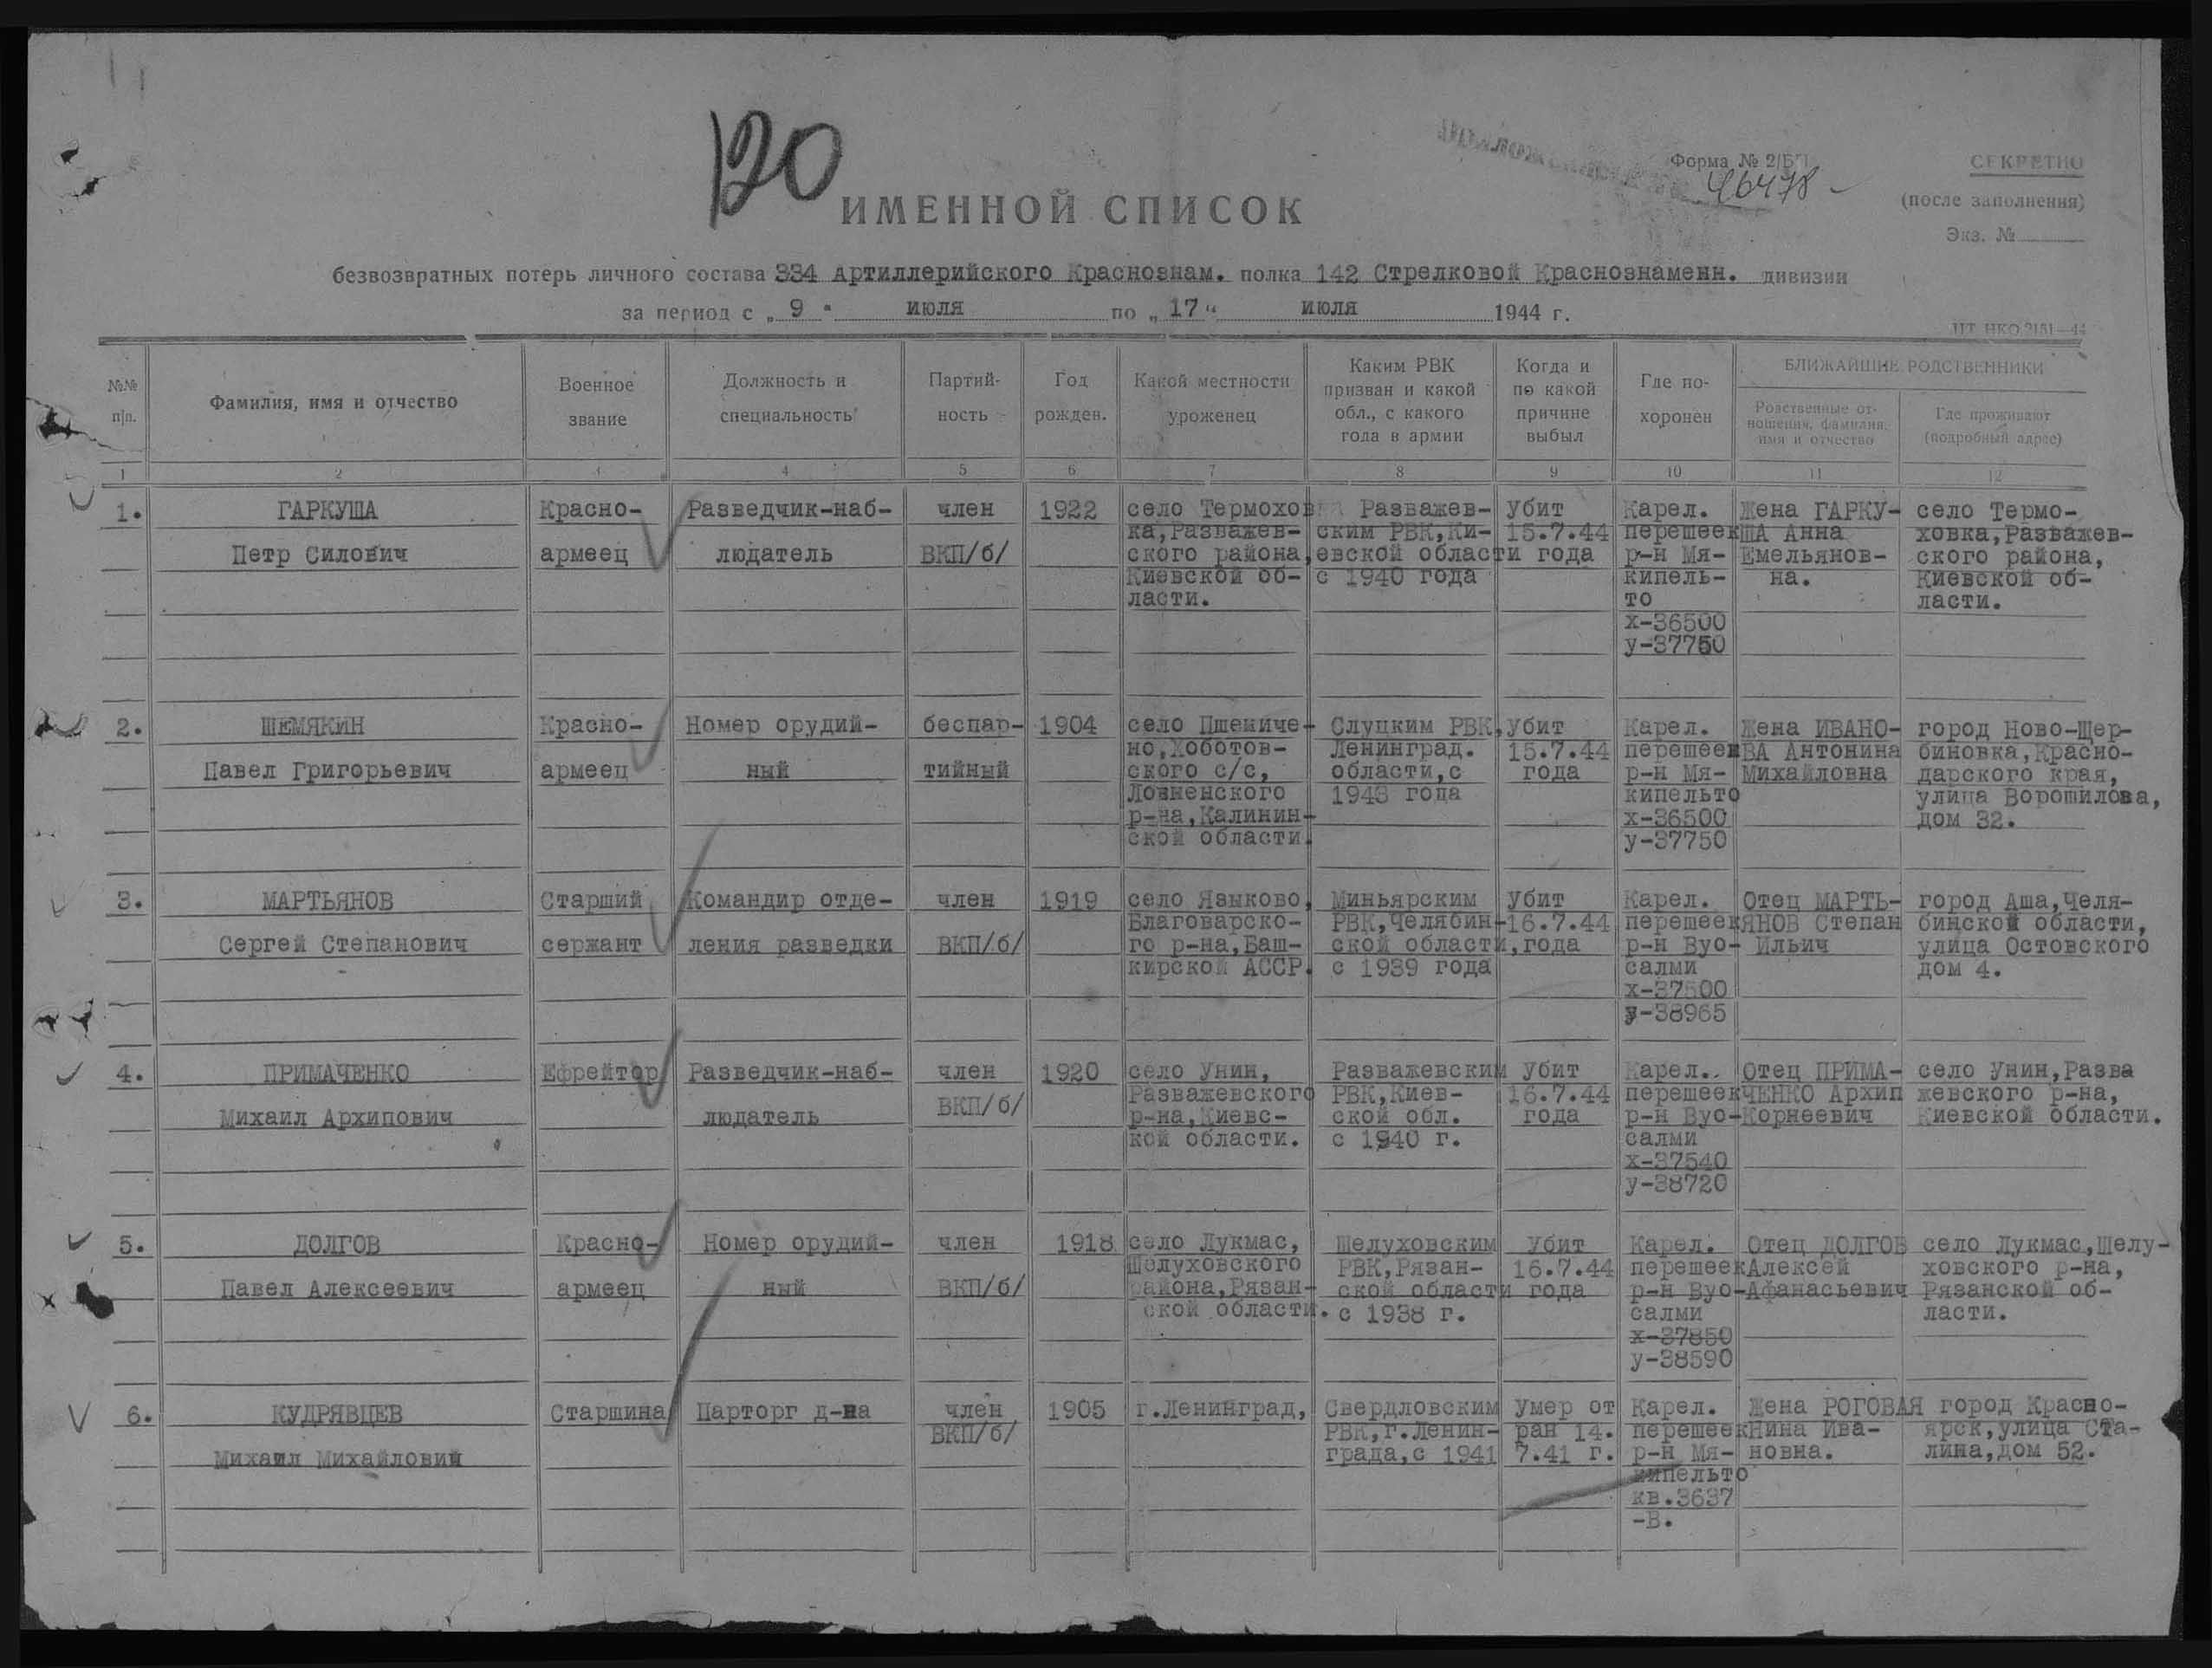 120
Форма № 2/БП
46478
СЕКРЕТНО
(после заполнения)
Экз. №
ИМЕННОЙ СПИСОК
безвозвратных потерь личного состава 334 Артиллерийского Краснознам. полка 142 Стрелковой Краснознаменн. дивизии
за период с „ 9 " июля по „ 17 " июля 1944 г.
№№ п|п.
Фамилия, имя и отчество
Военное звание
Должность и специальность
Партий-
ность
Год рожден.
Какой местности уроженец
Каким РВК
призван и какой
обл., с какого
года в армии
Когда и
по какой
причине
выбыл
Где по-
хоронен
БЛИЖАЙШИЕ РОДСТВЕННИКИ
Родственные от-
ношения, фамилия,
имя и отчество
Где проживают
(подробный адрес)
1 2 3 4 5 6 7 8 9 10 11 12
1.
ГАРКУША
Петр Силович
Красно-
армеец
Разведчик-наб-
людатель
член
ВКП/б/
1922
село Термохов
ка,Разважев-
ского района,
Киевской об-
ласти.
Разважев-
ским РВК,Ки-
евской области
с 1940 года
Убит
15.7.44
года
Карел.
перешеек
р-н Мя-
кипель-
то
х-36500
у-37750
Жена ГАРКУ-
ША Анна
Емельянов-
на.
село Термо-
ховка,Разважев-
ского района,
Киевской об-
ласти.
2.
ШЕМЯКИН
Павел Григорьевич
Красно-
армеец
Номер орудий-
ный
беспар-
тийный
1904
село Пшениче-
но,Хоботов-
ского с/с,
Ловненского
р-на,Калинин-
ской области.
Слуцким РВК,
Ленинград.
области,с
1943 года
Убит
15.7.44
года
Карел.
перешеек
р-н Мя-
кипельто
х-36500
у-37750
Жена ИВАНО-
ВА Антонина
Михайловна
город Ново-Щер-
биновка,Красно-
дарского края,
улица Ворошилова,
дом 32.
3.
МАРТЬЯНОВ
Сергей Степанович
Старший
сержант
Командир отде-
ления разведки
член
ВКП/б/
1919
село Языково,
Благоварско-
го р-на,Баш-
кирской АССР.
Миньярским
РВК,Челябин-
ской области,
с 1939 года
Убит
16.7.44
года
Карел.
перешеек
р-н Вуо-
салми
х-37500
у-38965
Отец МАРТЬ-
ЯНОВ Степан
Ильич
город Аша,Челя-
бинской области,
улица Остовского
дом 4.
4.
ПРИМАЧЕНКО
Михаил Архипович
Ефрейтор
Разведчик-наб-
людатель
член
ВКП/б/
1920
село Унин,
Разважевского
р-на,Киевс-
кой области.
Разважевским
РВК,Киев-
ской обл.
с 1940 г.
Убит
16.7.44
года
Карел.
перешеек
р-н Вуо-
салми
х-37540
у-38720
Отец ПРИМА-
ЧЕНКО Архип
Корнеевич
село Унин,Разва
жевского р-на,
Киевской области.
5.
ДОЛГОВ
Павел Алексеевич
Красно-
армеец
Номер орудий-
ный
член
ВКП/б/
1918
село Лукмас,
Шелуховского
района,Рязан-
ской области.
Шелуховским
РВК,Рязан-
ской области
с 1938 г.
Убит
16.7.44
года
Карел.
перешеек
р-н Вуо-
салми
х-37850
у-38590
Отец ДОЛГОВ
Алексей
Афанасьевич
село Лукмас,Шелу-
ховского р-на,
Рязанской об-
ласти.
6.
КУДРЯВЦЕВ
Михаил Михайлович
Старшина
Парторг д-на
член
ВКП/б/
1905
г.Ленинград,
Свердловским
РВК,г.Ленин-
града,с 1941
Умер от
ран 14.
7.41 г.
Карел.
перешеек
р-н Мя-
кипельто
кв.3637
-В.
Жена РОГОВАЯ
Нина Ива-
новна.
город Красно-
ярск,улица Ста-
лина,дом 52.